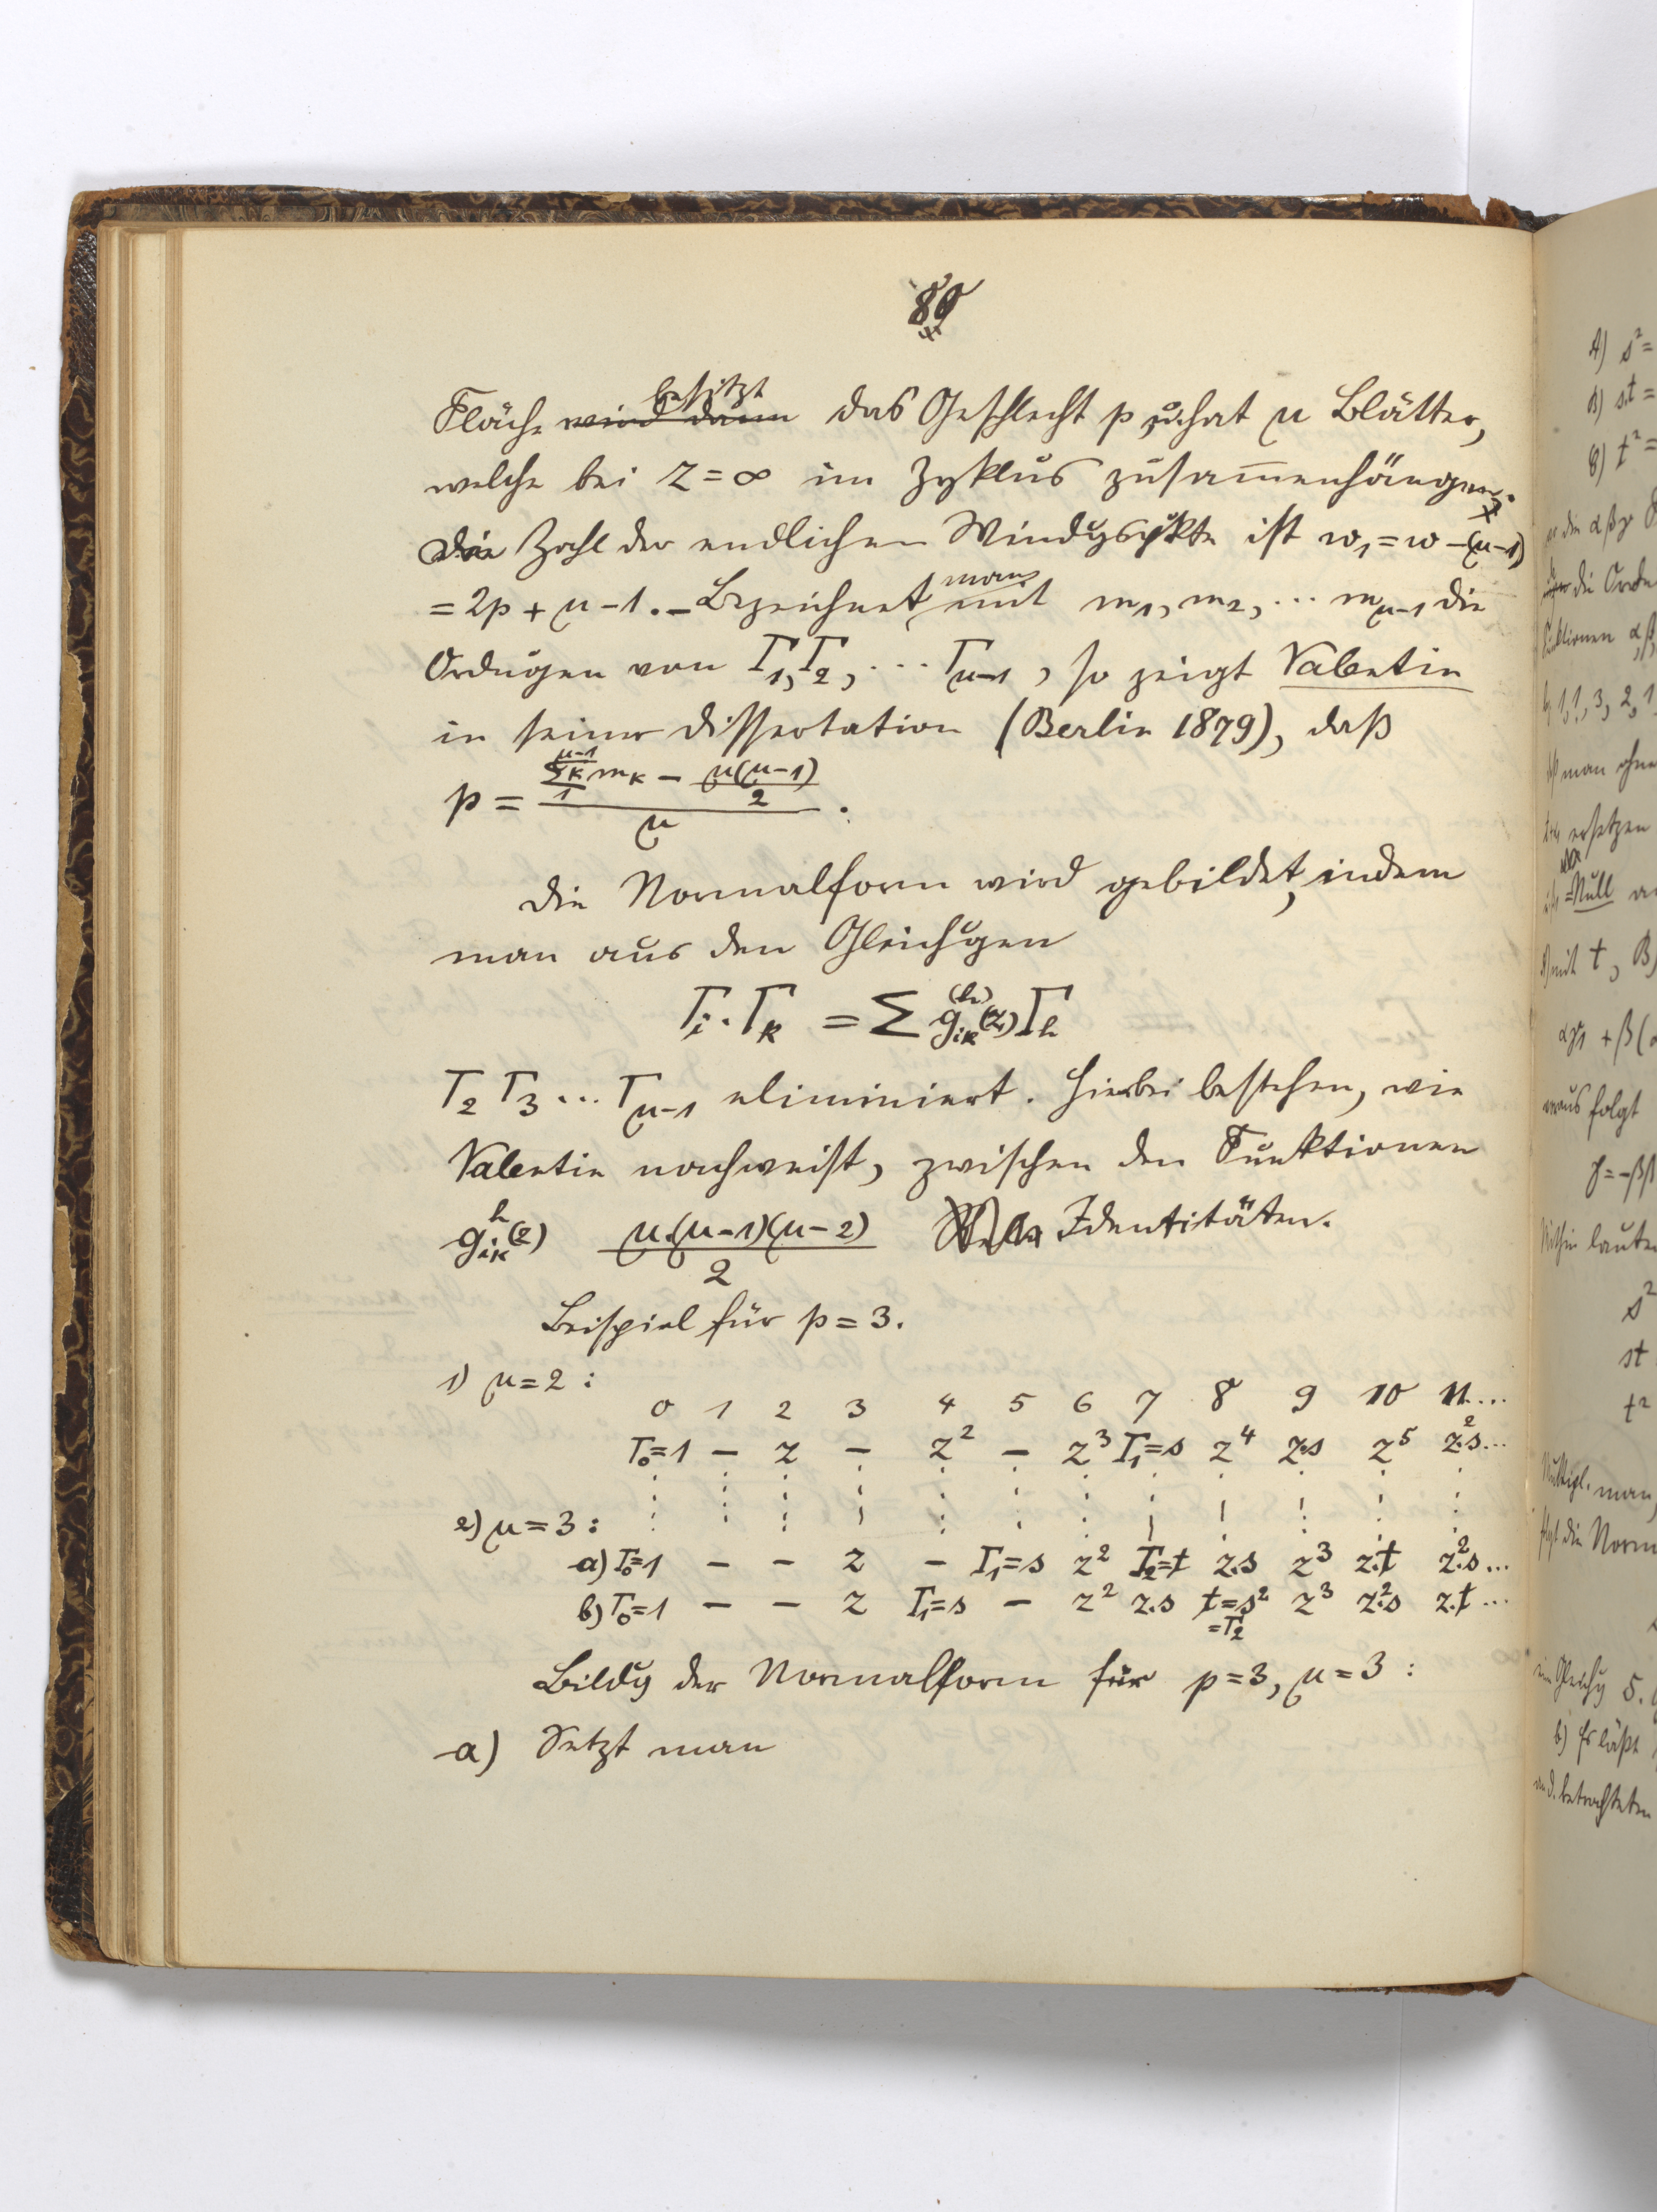 89
Fläche wird dann besitzt das Geschlecht p u. hat μ Blätter,
welche bei z = ∞ im Zyklus zusammenhängen.
Die Zahl der endlichen Windgspkte ist w₁ = w − (μ−1)
= 2p + μ − 1. – Bezeichnet man mit m₁, m₂, … m_{μ−1} die
Ordnugen von Γ₁, Γ₂, … Γ_{μ−1}, so zeigt Valentin
in seiner Dissertation (Berlin 1879), daß
p = (∑₁^{μ−1} κ m_κ − μ(μ−1)/2) / μ .
Die Normalform wird gebildet, indem
man aus den Gleichugen
Γ_i · Γ_k = ∑ g_{ik}^{(h)}(z) Γ_h
Γ₂ Γ₃ … Γ_{μ−1} eliminiert. Hierbei bestehen, wie
Valentin nachweist, zwischen den Funktionen
g_{ik}^{h}(z) μ.(μ−1)(μ−2)/2 Identitäten.
Beispiel für p = 3.
1) μ = 2 :
0 1 2 3 4 5 6 7 8 9 10 11 …
Γ₀=1 – z – z² – z³ Γ₁=s z⁴ z.s z⁵ z².s …
2) μ = 3 :
a) Γ₀=1 – – z – Γ₁=s z² Γ₂=t z.s z³ z.t z².s …
b) Γ₀=1 – – z Γ₁=s – z² z.s t=s² =Γ₂ z³ z².s z.t …
Bildg der Normalform für p=3, μ=3 :
a) Setzt man
A) s² =
B) s.t =
C) t² =
die Orde
man ohne
ersetzen
=Null
mit t, B)
folgt
γ = −ββ
lauten
s²
st
t²
man,
die Norm
b) Es läßt
betrachteten